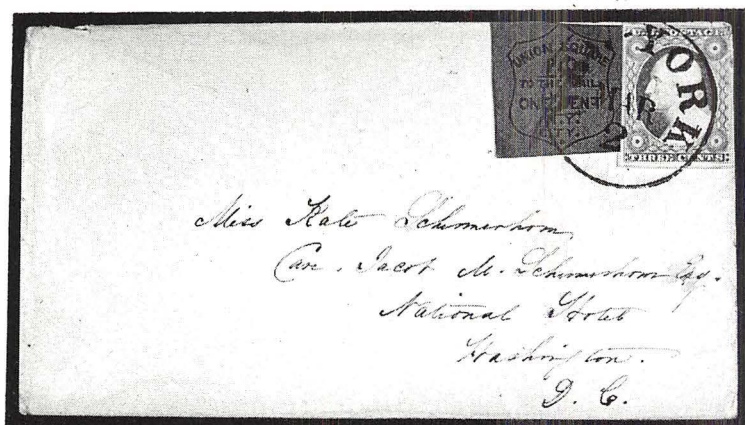 UNION SQUARE
P.O.
TO THE MAIL
ONE CENT
N.Y.
CITY.
U.S. POSTAGE
THREE CENTS
YORK
MAR
2
Miss Kate Schermerhorn
Care. Jacob M. Schermerhorn Esq.
National Hotel
Washington.
D. C.